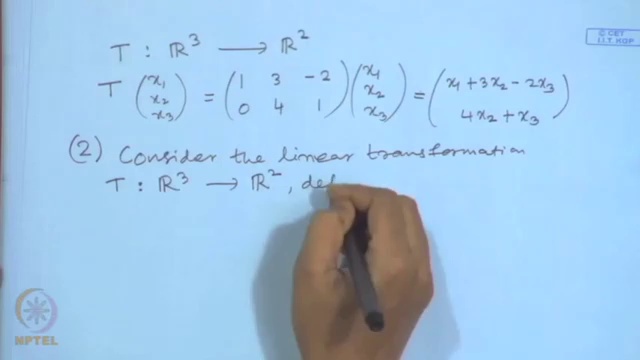 T : ℝ³ ⟶ ℝ²
T (x₁ x₂ x₃) = (1 3 -2 0 4 1) (x₁ x₂ x₃) = (x₁ + 3x₂ - 2x₃ 4x₂ + x₃)
(2) Consider the linear transformation
T : ℝ³ ⟶ ℝ², def
© CET
I.I.T. KGP
NPTEL